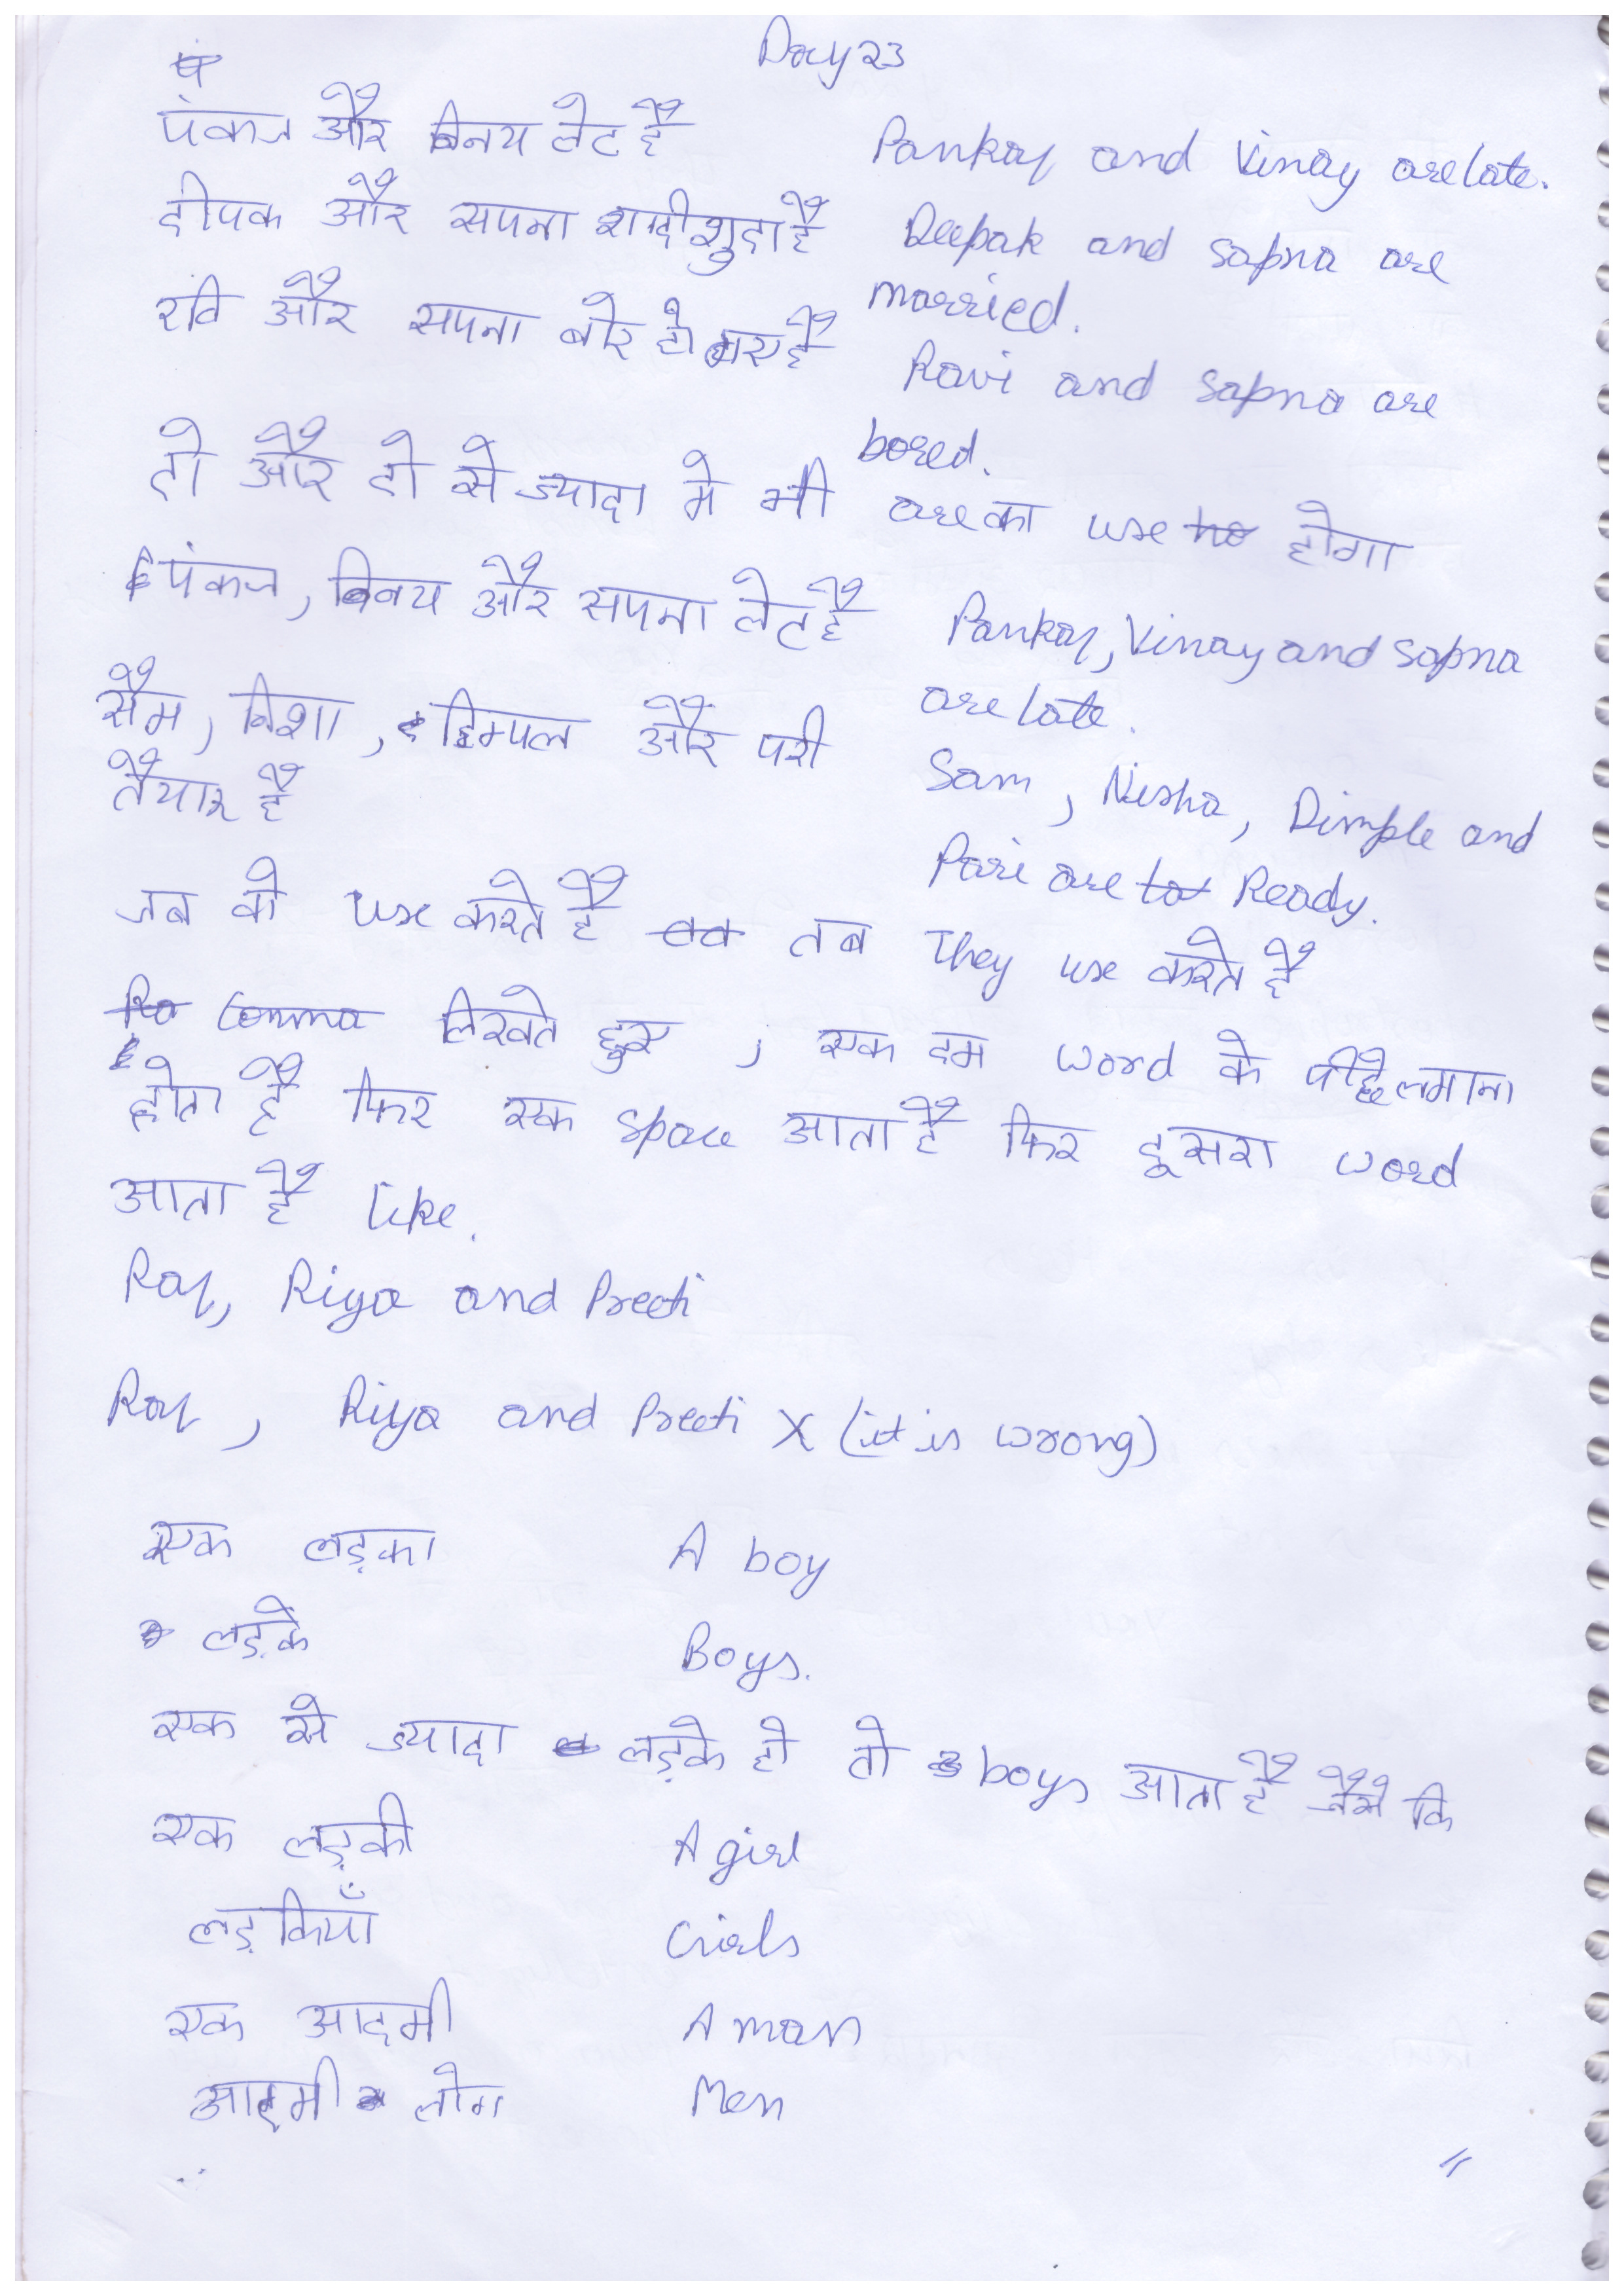 Day 23
पंकज और विनय लेट है Pankaj and Vinay are late.
दीपक और सपना शादीशुदा है Deepak and Sapna are
married.
रवि और सपना बोर हो गए है Ravi and Sapna are
bored.
दो और दो से ज्यादा मे भी are का use होगा
पंकज, विनय और सपना लेट है Pankaj, Vinay and Sapna
are late.
सैम, निशा, डिम्पल और परी Sam, Nisha, Dimple and
तैयार है Pari are Ready.
जब वो use करते है तब They use करते है
Comma लिखते हुए , एक दम word के पीछे लगाना
होता है फिर एक space आता है फिर दूसरा word
आता है like.
Raj, Riya and Preeti
Raj , Riya and Preeti X (it is wrong)
एक लड़का A boy
लड़के Boys.
एक से ज्यादा लड़के हो तो boys आता है जैसे कि
एक लड़की A girl
लड़कियाँ Girls
एक आदमी A man
आदमी लोग Men